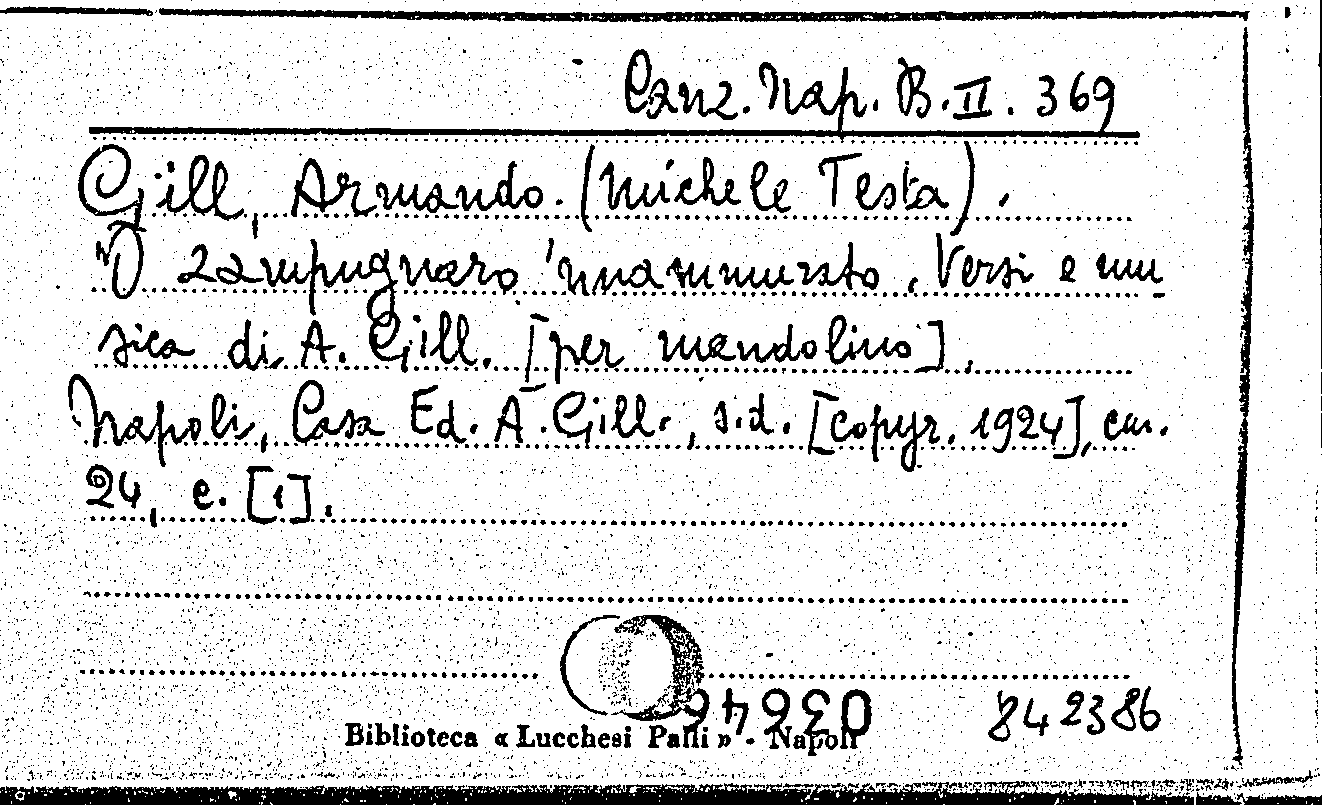 Canz. Nap. B. II. 369
Gill, Armando. (Michele Testa).
'O zampugnaro 'nnammurato. Versi e mu
sica di A. Gill. [per mandolino].
Napoli, Casa Ed. A. Gill., s.d. [copyr. 1924], cm.
24, c. [1].
842386
Biblioteca « Lucchesi Palli » - Napoli